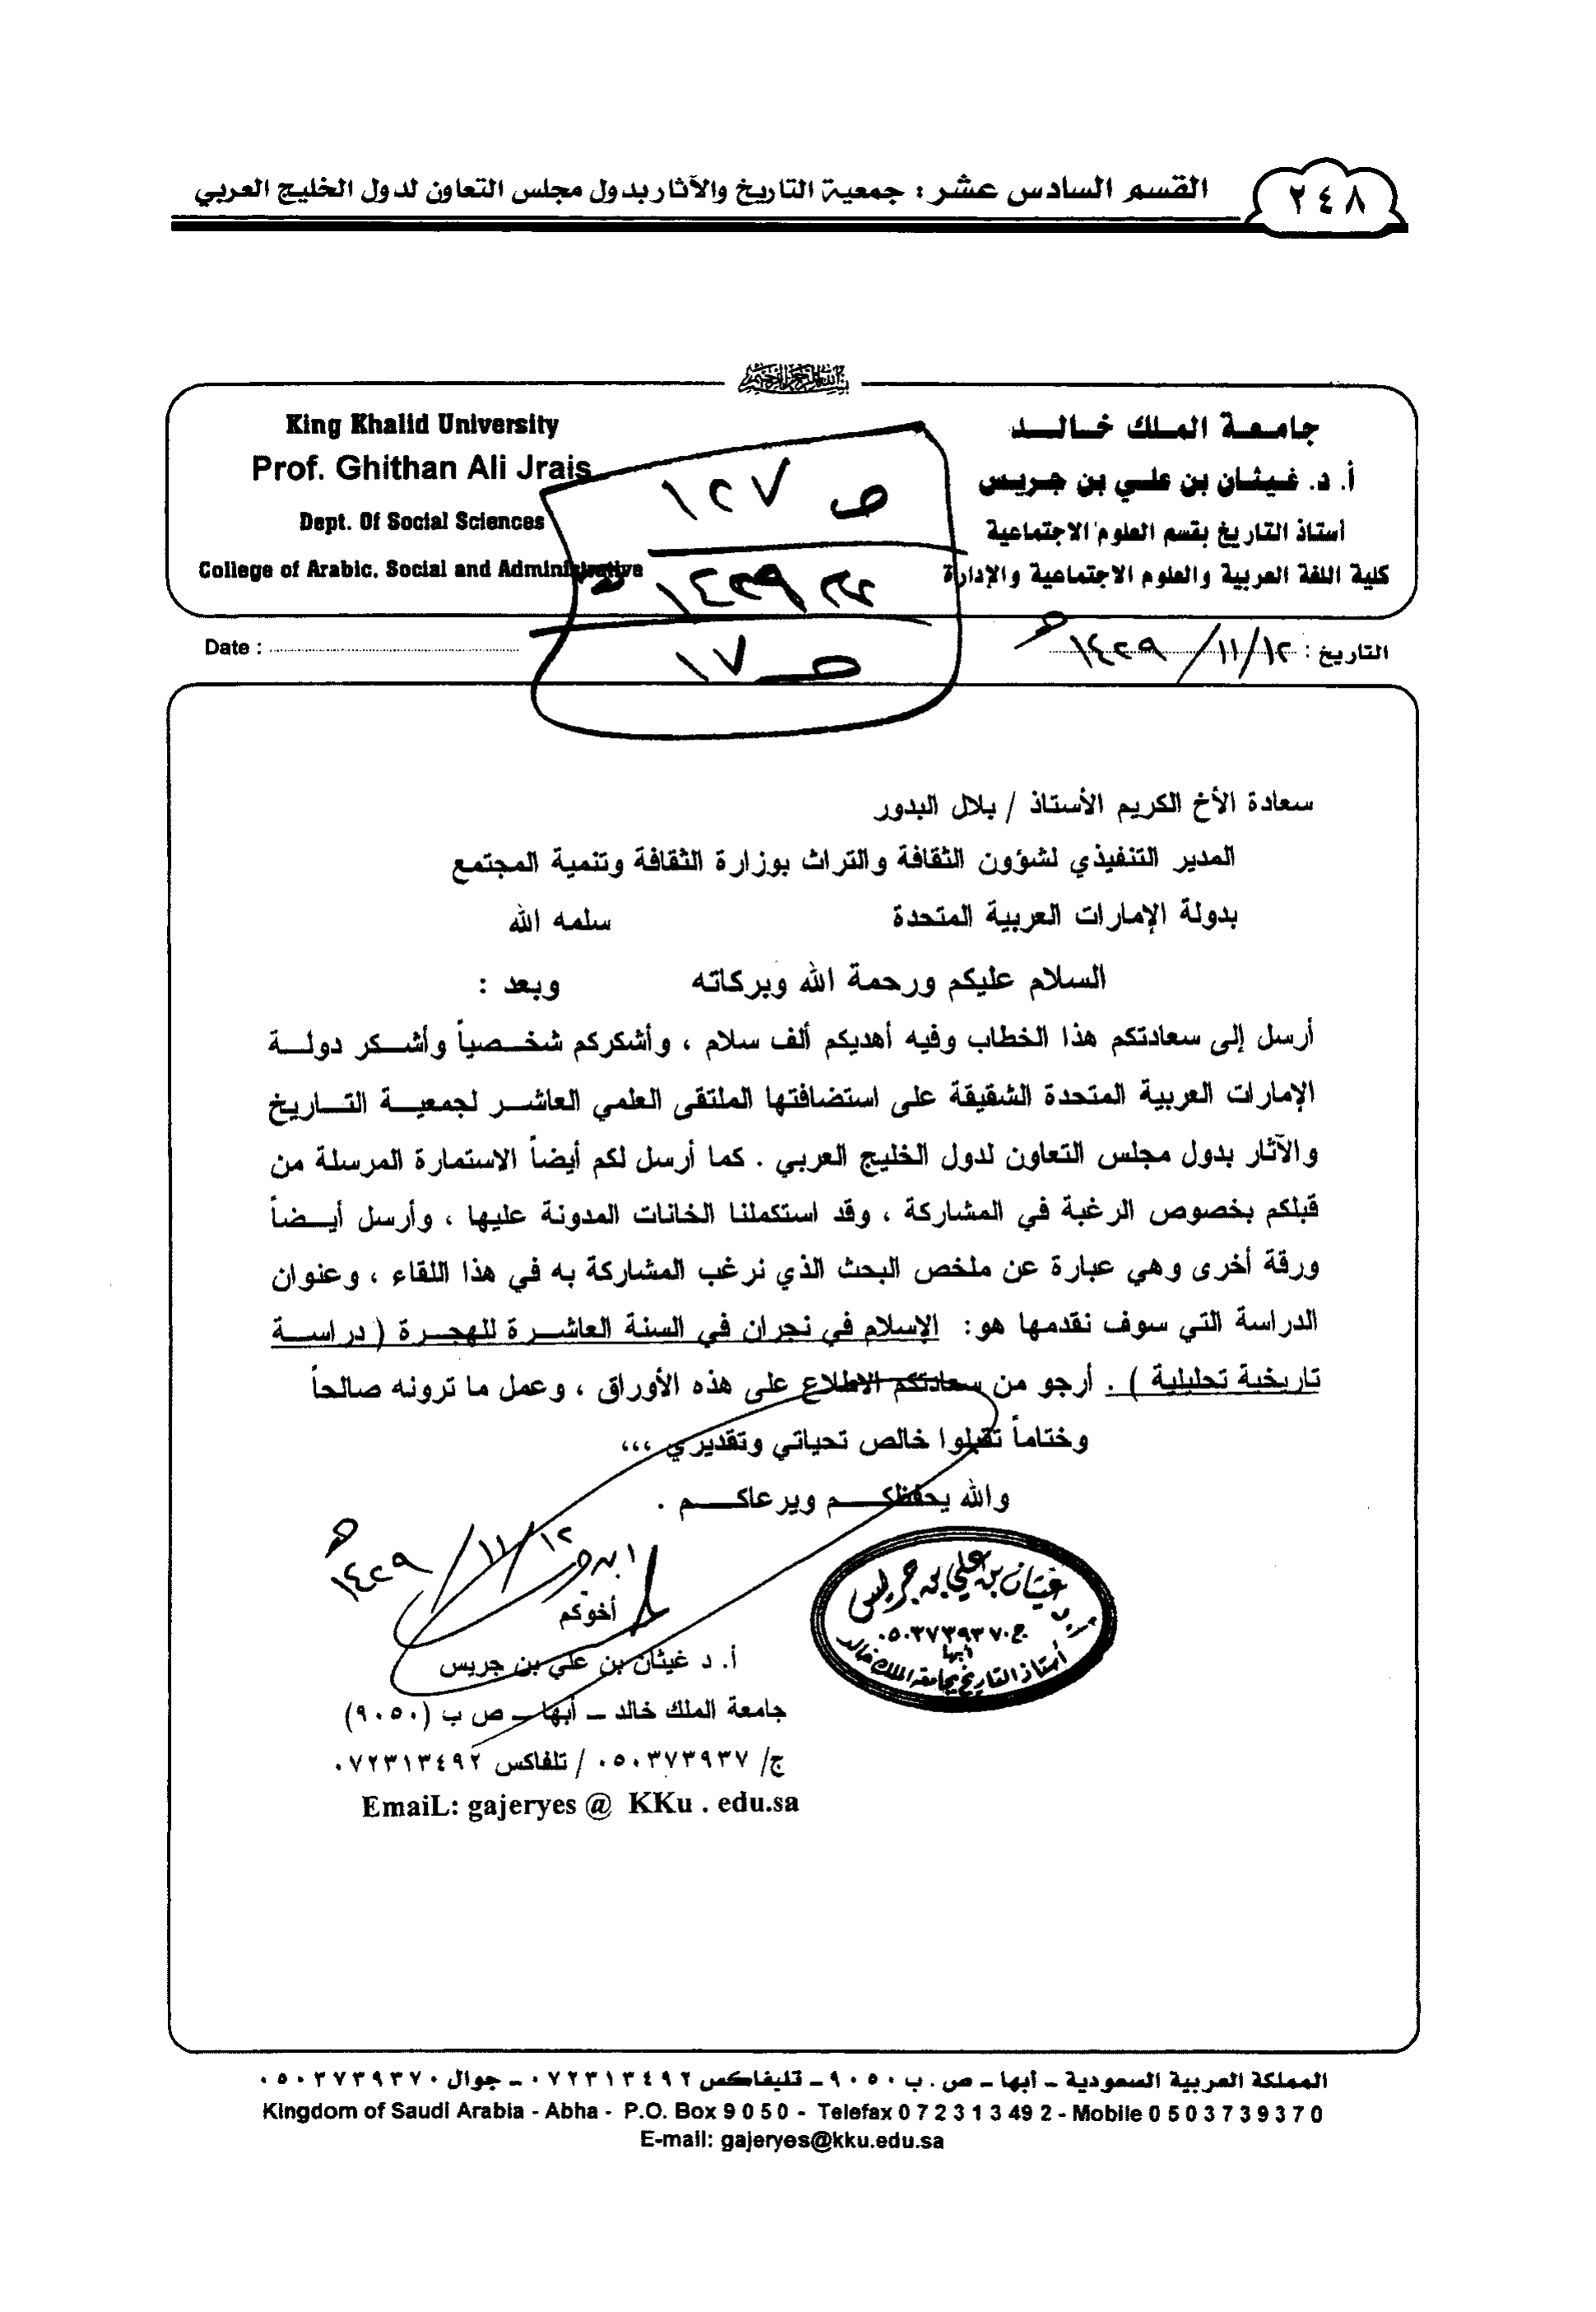 القسم السادس عشر : جمعية التاريخ والآثار بدول مجلس التعاون لدول الخليج العربي
٢٤٨
بسم الله الرحمن الرحيم
جامعة الملك خالد
أ. د. غيثان بن علي بن جريس
أستاذ التاريخ بقسم العلوم الاجتماعية
كلية اللغة العربية والعلوم الاجتماعية والإدارة
King Khalid University
Prof. Ghithan Ali Jrais
Dept. Of Social Sciences
College of Arabic. Social and Administrative
ص ١٢٧
١٤٢٩ هـ
ص ١٧
التاريخ : ١٤٢٩/١١/١٢ هـ
Date :
سعادة الأخ الكريم الأستاذ / بلال البدور
المدير التنفيذي لشؤون الثقافة والتراث بوزارة الثقافة وتنمية المجتمع
بدولة الإمارات العربية المتحدة سلمه الله
السلام عليكم ورحمة الله وبركاته وبعد :
أرسل إلى سعادتكم هذا الخطاب وفيه أهديكم ألف سلام ، وأشكركم شخصياً وأشكر دولة
الإمارات العربية المتحدة الشقيقة على استضافتها الملتقى العلمي العاشر لجمعية التاريخ
والآثار بدول مجلس التعاون لدول الخليج العربي . كما أرسل لكم أيضاً الاستمارة المرسلة من
قبلكم بخصوص الرغبة في المشاركة ، وقد استكملنا الخانات المدونة عليها ، وأرسل أيضاً
ورقة أخرى وهي عبارة عن ملخص البحث الذي نرغب المشاركة به في هذا اللقاء ، وعنوان
الدراسة التي سوف نقدمها هو: الإسلام في نجران في السنة العاشرة للهجرة ( دراسة
تاريخية تحليلية ) . أرجو من سعادتكم الاطلاع على هذه الأوراق ، وعمل ما ترونه صالحاً
وختاماً تقبلوا خالص تحياتي وتقديري ،،،
والله يحفظكم ويرعاكم .
١٤٢٩/١١/١٢ هـ
أخوكم
أ. د غيثان بن علي بن جريس
جامعة الملك خالد – أبها – ص ب (٩٠٥٠)
ج/ ٠٥٠٣٧٣٩٣٧ / تلفاكس ٠٧٢٣١٣٤٩٢
EmaiL: gajeryes @ KKu . edu.sa
غيثان بن علي بن جريس
ج ٠٥٠٣٧٣٩٣٧٠
أبها
أستاذ التاريخ بجامعة الملك خالد
المملكة العربية السعودية – أبها – ص . ب ٩٠٥٠ – تليفاكس ٠٧٢٣١٣٤٩٢ – جوال ٠٥٠٣٧٣٩٣٧٠
Kingdom of Saudi Arabia - Abha - P.O. Box 9 0 5 0 - Telefax 0 7 2 3 1 3 4 9 2 - Mobile 0 5 0 3 7 3 9 3 7 0
E-mail: gajeryes@kku.edu.sa